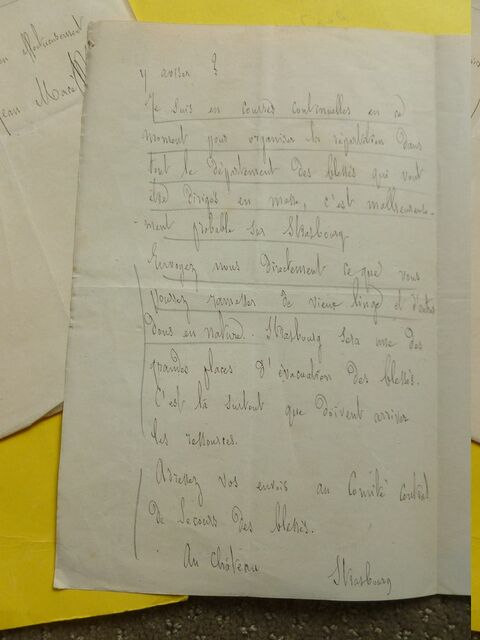 on affectueusement
Jean Marie
y aviser ?
Je suis en courses continuelles en ce
moment pour organiser la répartition dans
tout le département des blessés qui vont
être dirigés en masse, c'est malheureuse-
-ment probable sur Strasbourg.
Envoyez nous directement ce que vous
pourrez ramasser de vieux linge et d'autres
dons en nature. Strasbourg sera une des
grandes places d'évacuation des blessés.
C'est là surtout que doivent arriver
les ressources.
Adressez vos envois au Comité central
de secours des blessés.
Au Château
Strasbourg